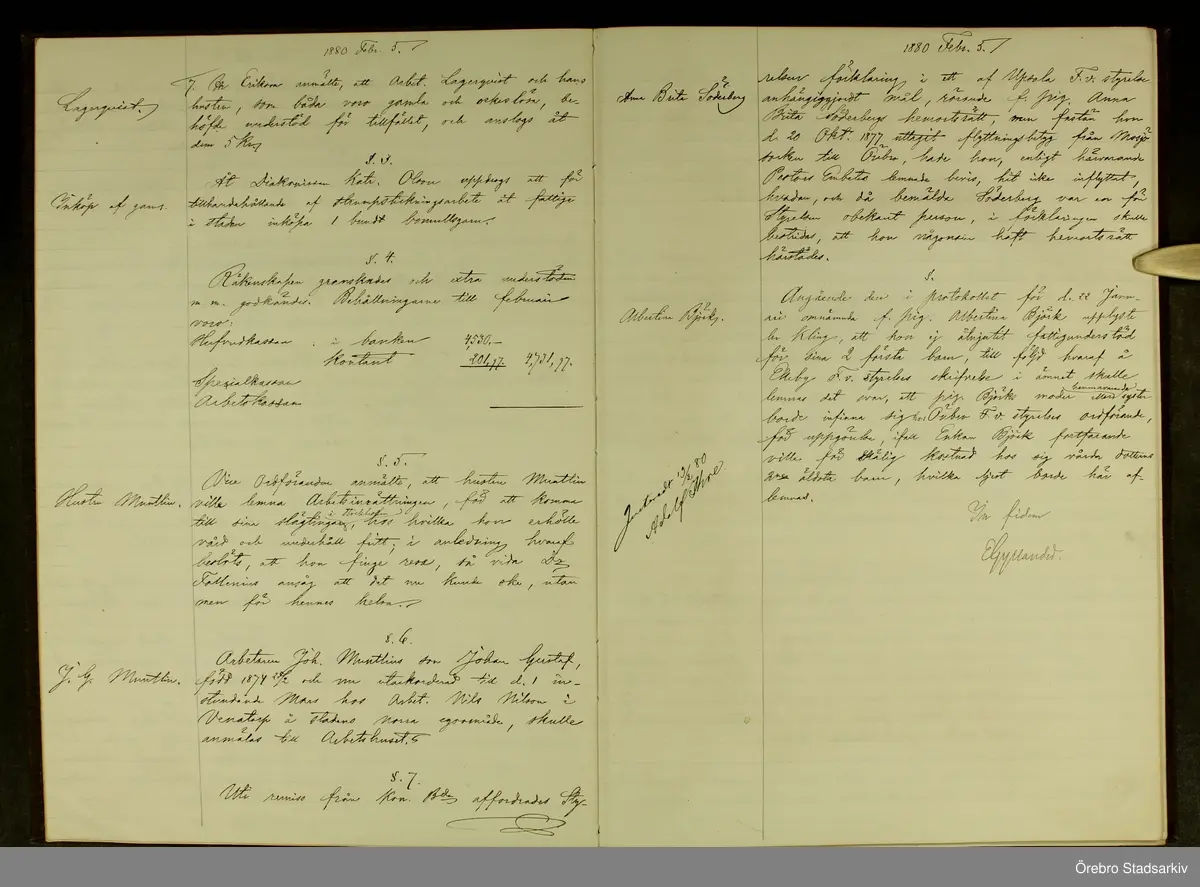 1880 Febr. 5.
Lagerquist.
7. Ph Erikson anmälte, att Arbet. Lagerquist och hans
hustru, som båda voro gamla och orkeslösa, be-
höfde understöd för tillfället, och anslogs åt
dem 5 Kr.
§. 3.
Inköp af garn.
Åt Diakonissan Katr. Olson uppdrogs att för
tillhandahållande af strumpstickningsarbete åt fattige
i staden inköpa 1 bundt bomullsgarn.
§. 4.
Räkenskapen granskades och extra understöden
m. m. godkändes. Behållningarne till februari
voro:
Hufvudkassan i banken 4530,—
Kontant 201,77. 4,731,77.
Spezialkassan
Arbetskassan
§. 5.
Hustru Muntlin.
Vice Ordföranden anmälte, att hustru Muntlin
ville lemna Arbetsinrättningen, för att komma
till sina slägtingar i Stockholm, hos hvilka hon erhölle
vård och underhåll fritt; i anledning hvaraf
beslöts, att hon finge resa, så vida Dr
Fallenius ansåg att det nu kunde ske, utan
men för hennes helsa.
§. 6.
J. G. Muntlin.
Arbetaren Joh. Muntlins son Johan Gustaf,
född 1874 28/2 och nu utackorderad till d. 1 in-
stundande Mars hos Arbet. Nils Nilson i
Venatorp å stadens norra egoområde, skulle
anmälas till Arbetshuset.
§. 7.
Uti remiss från Kon. Bde affordrades Sty-
1880 Febr. 5.
Anna Brita Söderberg
relsen förklaring i ett af Upsala F.v. styrelse
anhängiggjordt mål, rörande f. pig. Anna
Brita Söderbergs hemortsrätt, men fastän hon
d. 20 Okt. 1877 uttagit flyttningsbetyg från
socken till Örebro, hade hon, enligt härvarande
Pastors Embetes lemnade bevis, hit icke inflyttat,
hvadan, och då bemälda Söderberg var en för
Styrelsen obekant person, i förklaringen skulle
bestridas, att hon någonsin haft hemortsrätt
härstädes.
§.
Albertina Björk.
Angående den i protokollet för d. 22 Janu-
ari omnämnda f. pig. Albertina Björk upplyste
Kling, att hon ej åtnjutit fattigunderstöd
för sina 2 förste barn, till följd hvaraf å
Ekeby F.v. styrelses skrifvelse i ämnet skulle
lemnas det svar, att pig. Björks moder hemmavarande
borde infinna sig hos Örebro F.v. styrelses ordförande,
för uppgörelse, ifall Enkan Björk fortfarande
ville för skälig kostnad hos sig vårda dotterns
2ne äldsta barn, hvilka ljest borde här af-
lemnas.
In fidem
EGyllander.
Justeradt 19/2 80
Adolf Thore
Örebro Stadsarkiv